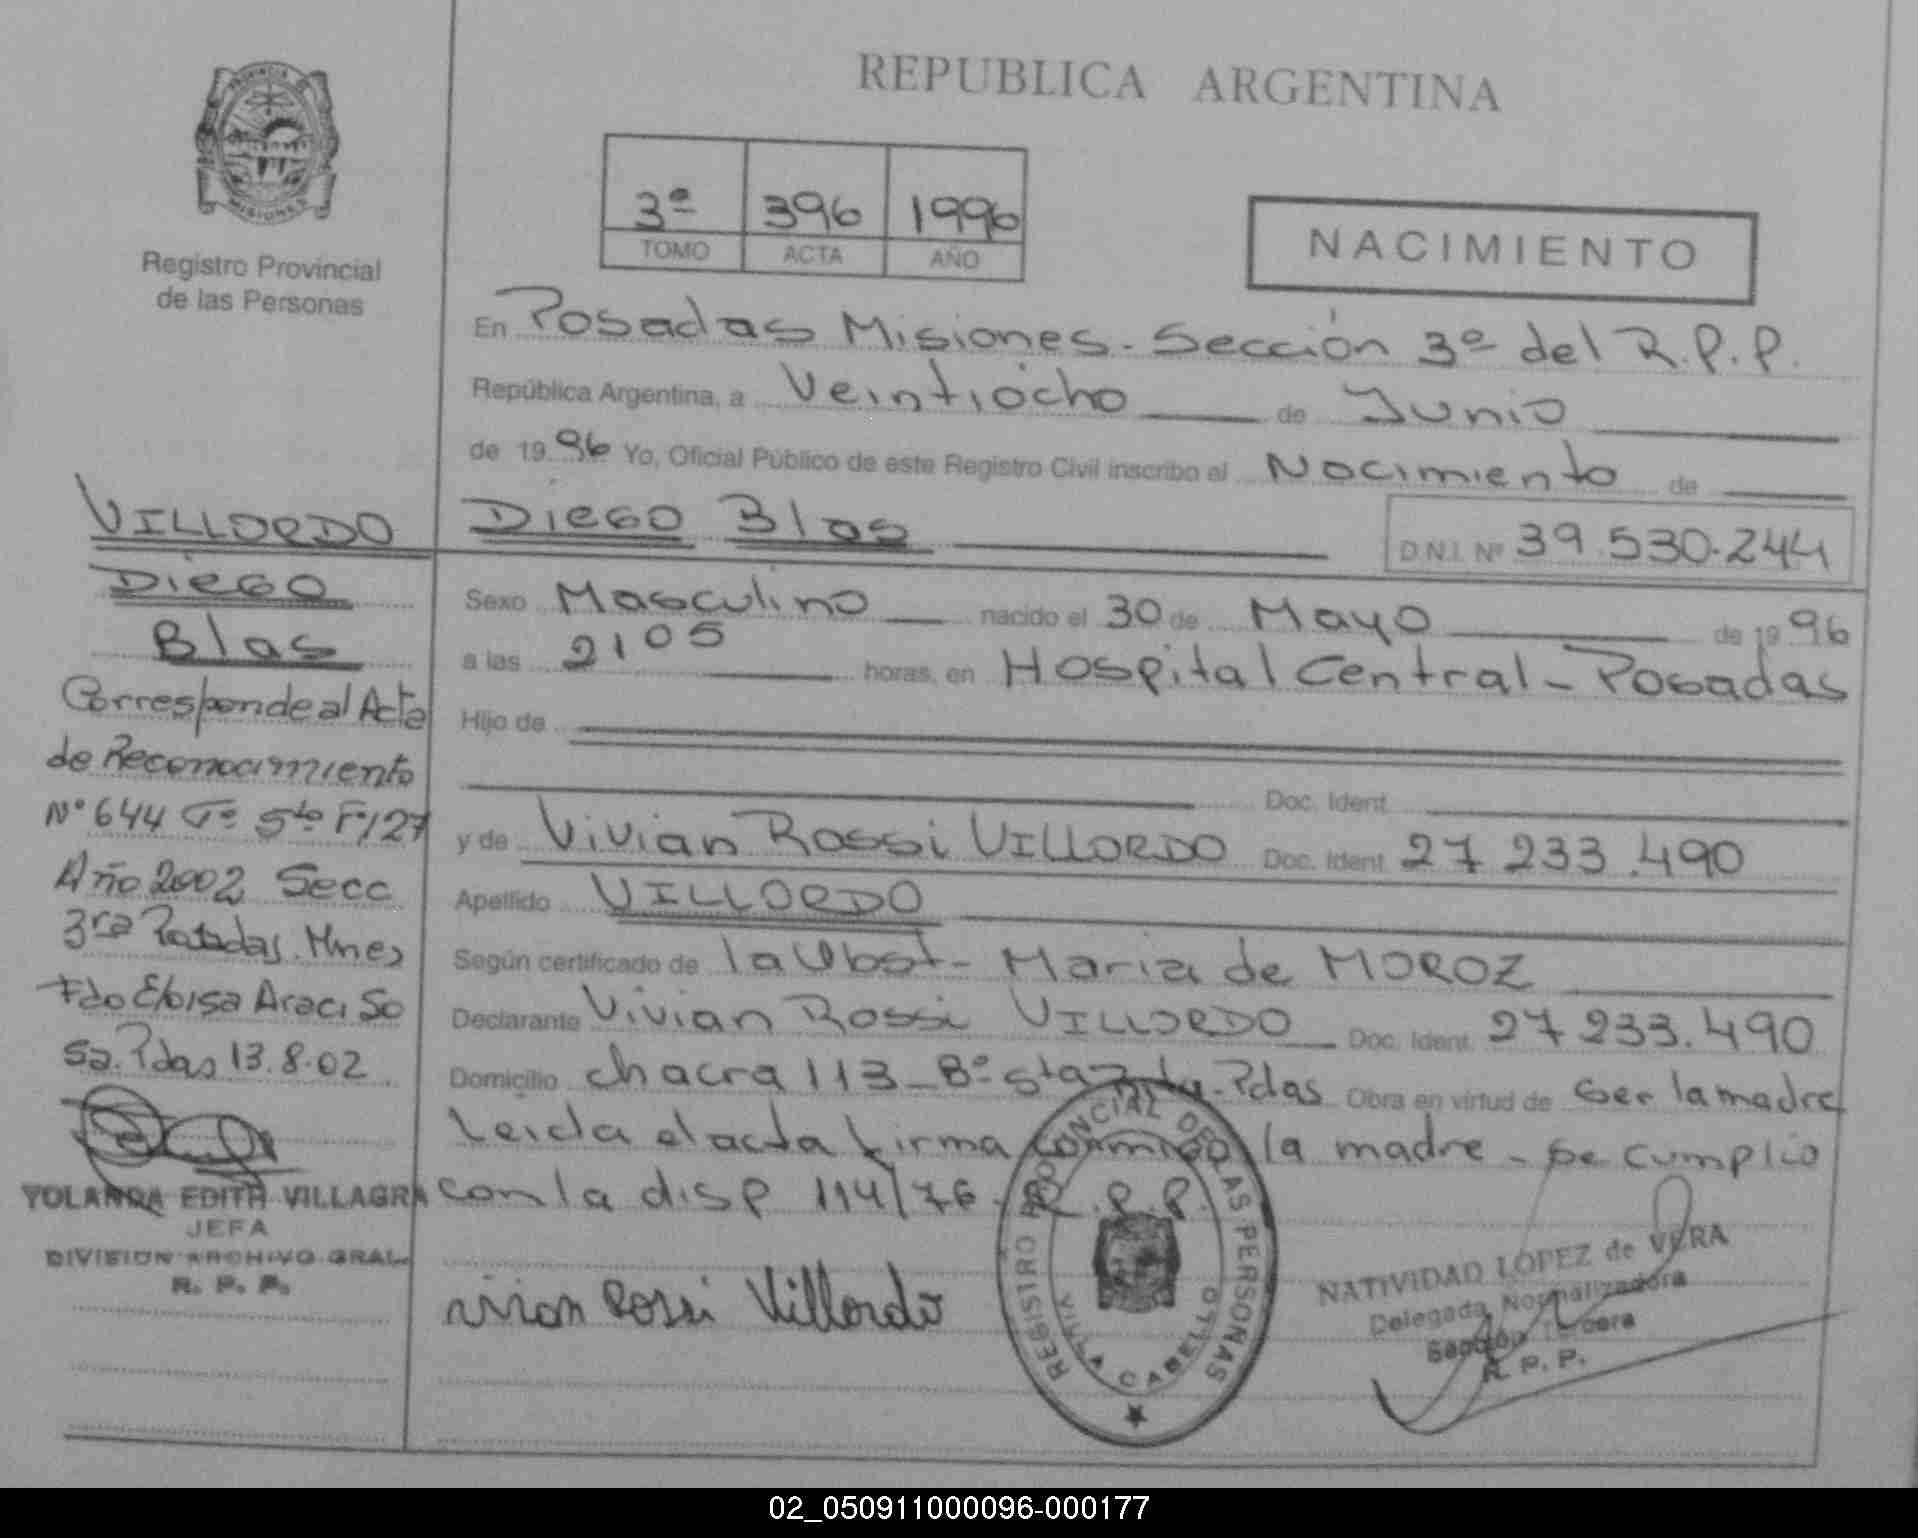 REPUBLICA ARGENTINA
PROVINCIA DE
MISIONES
Registro Provincial
de las Personas
3º 396 1996
TOMO ACTA AÑO
NACIMIENTO
En Posadas Misiones - Sección 3º del R.P.P.
República Argentina, a Veintiocho de Junio
de 1996 Yo, Oficial Público de este Registro Civil inscribo el Nacimiento de
Diego Blas
D.N.I. Nº 39.530.244
Sexo Masculino nacido el 30 de Mayo de 1996
a las 2105 horas, en Hospital Central - Posadas
Hijo de
Doc. Ident.
y de Vivian Rossi VILLORDO Doc. Ident. 27 233.490
Apellido VILLORDO
Según certificado de la Obst- Maria de MOROZ
Declarante Vivian Rossi VILLORDO Doc. Ident. 27 233.490
Domicilio chacra 113 - Bº Pdas Obra en virtud de ser la madre
Leida el acta firma conmigo la madre - se cumplio
con la disp 114/76 - R.P.P.
Vivian Rossi Villordo
REGISTRO PROVINCIAL DE LAS PERSONAS
VILLA CABELLO
NATIVIDAD LOPEZ de VERA
Delegada Normalizadora
Sección Tercera
R. P. P.
VILLORDO
Diego
Blas
Corresponde al Acta
de Reconocimiento
Nº 644 Tº 5to Fº 127
Año 2002 Secc
3ra Posadas. Mnes
Fdo Eloisa Araci So
sa. Pdas 13.8.02
YOLANDA EDITH VILLAGRA
JEFA
DIVISION ARCHIVO GRAL.
R. P. P.
02_050911000096-000177